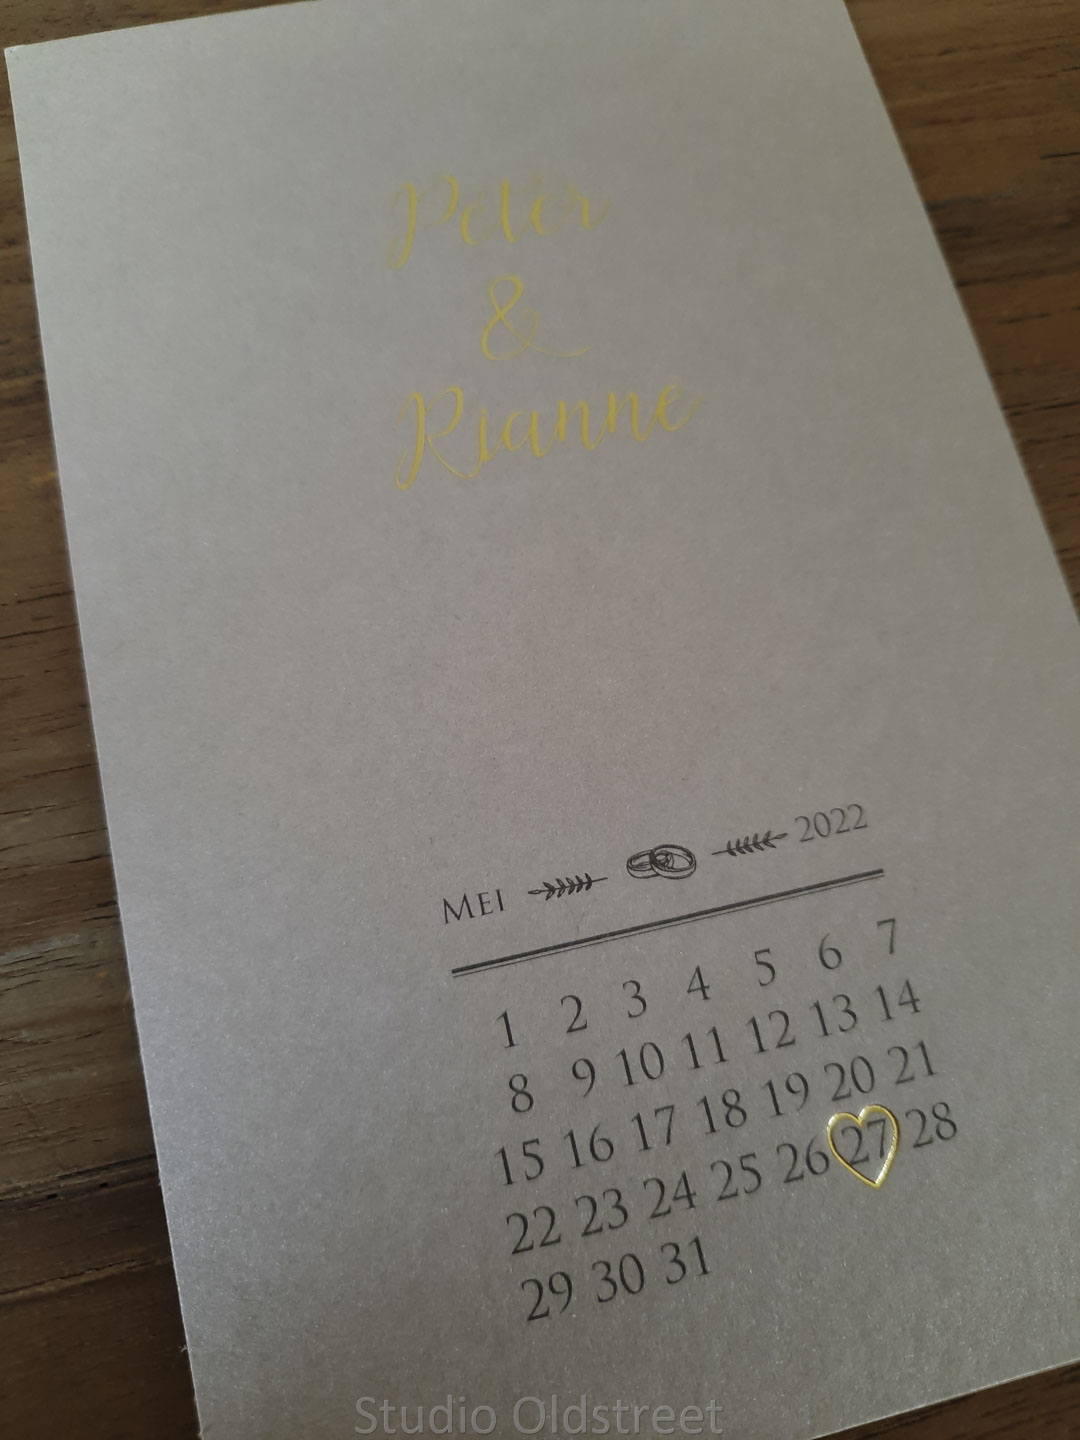 Peter
&
Rianne
MEI 2022
1 2 3 4 5 6 7
8 9 10 11 12 13 14
15 16 17 18 19 20 21
22 23 24 25 26 27 28
29 30 31
Studio Oldstreet